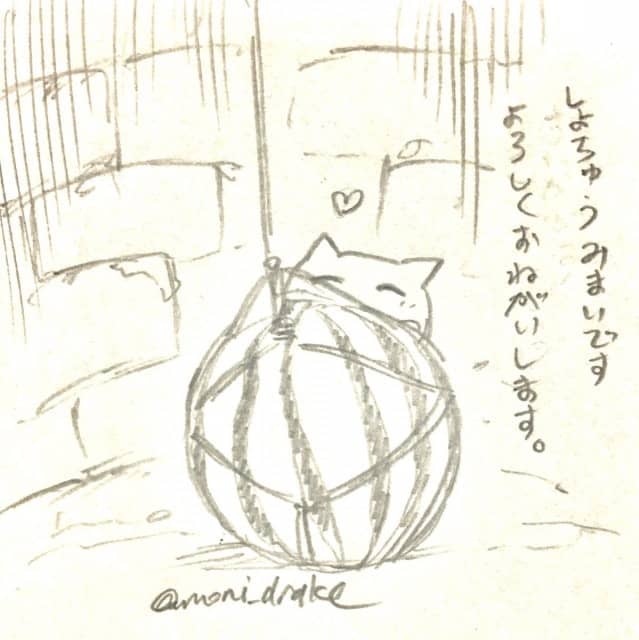 しょちゅうみまいです
よろしくおねがいします。
@moni_drake